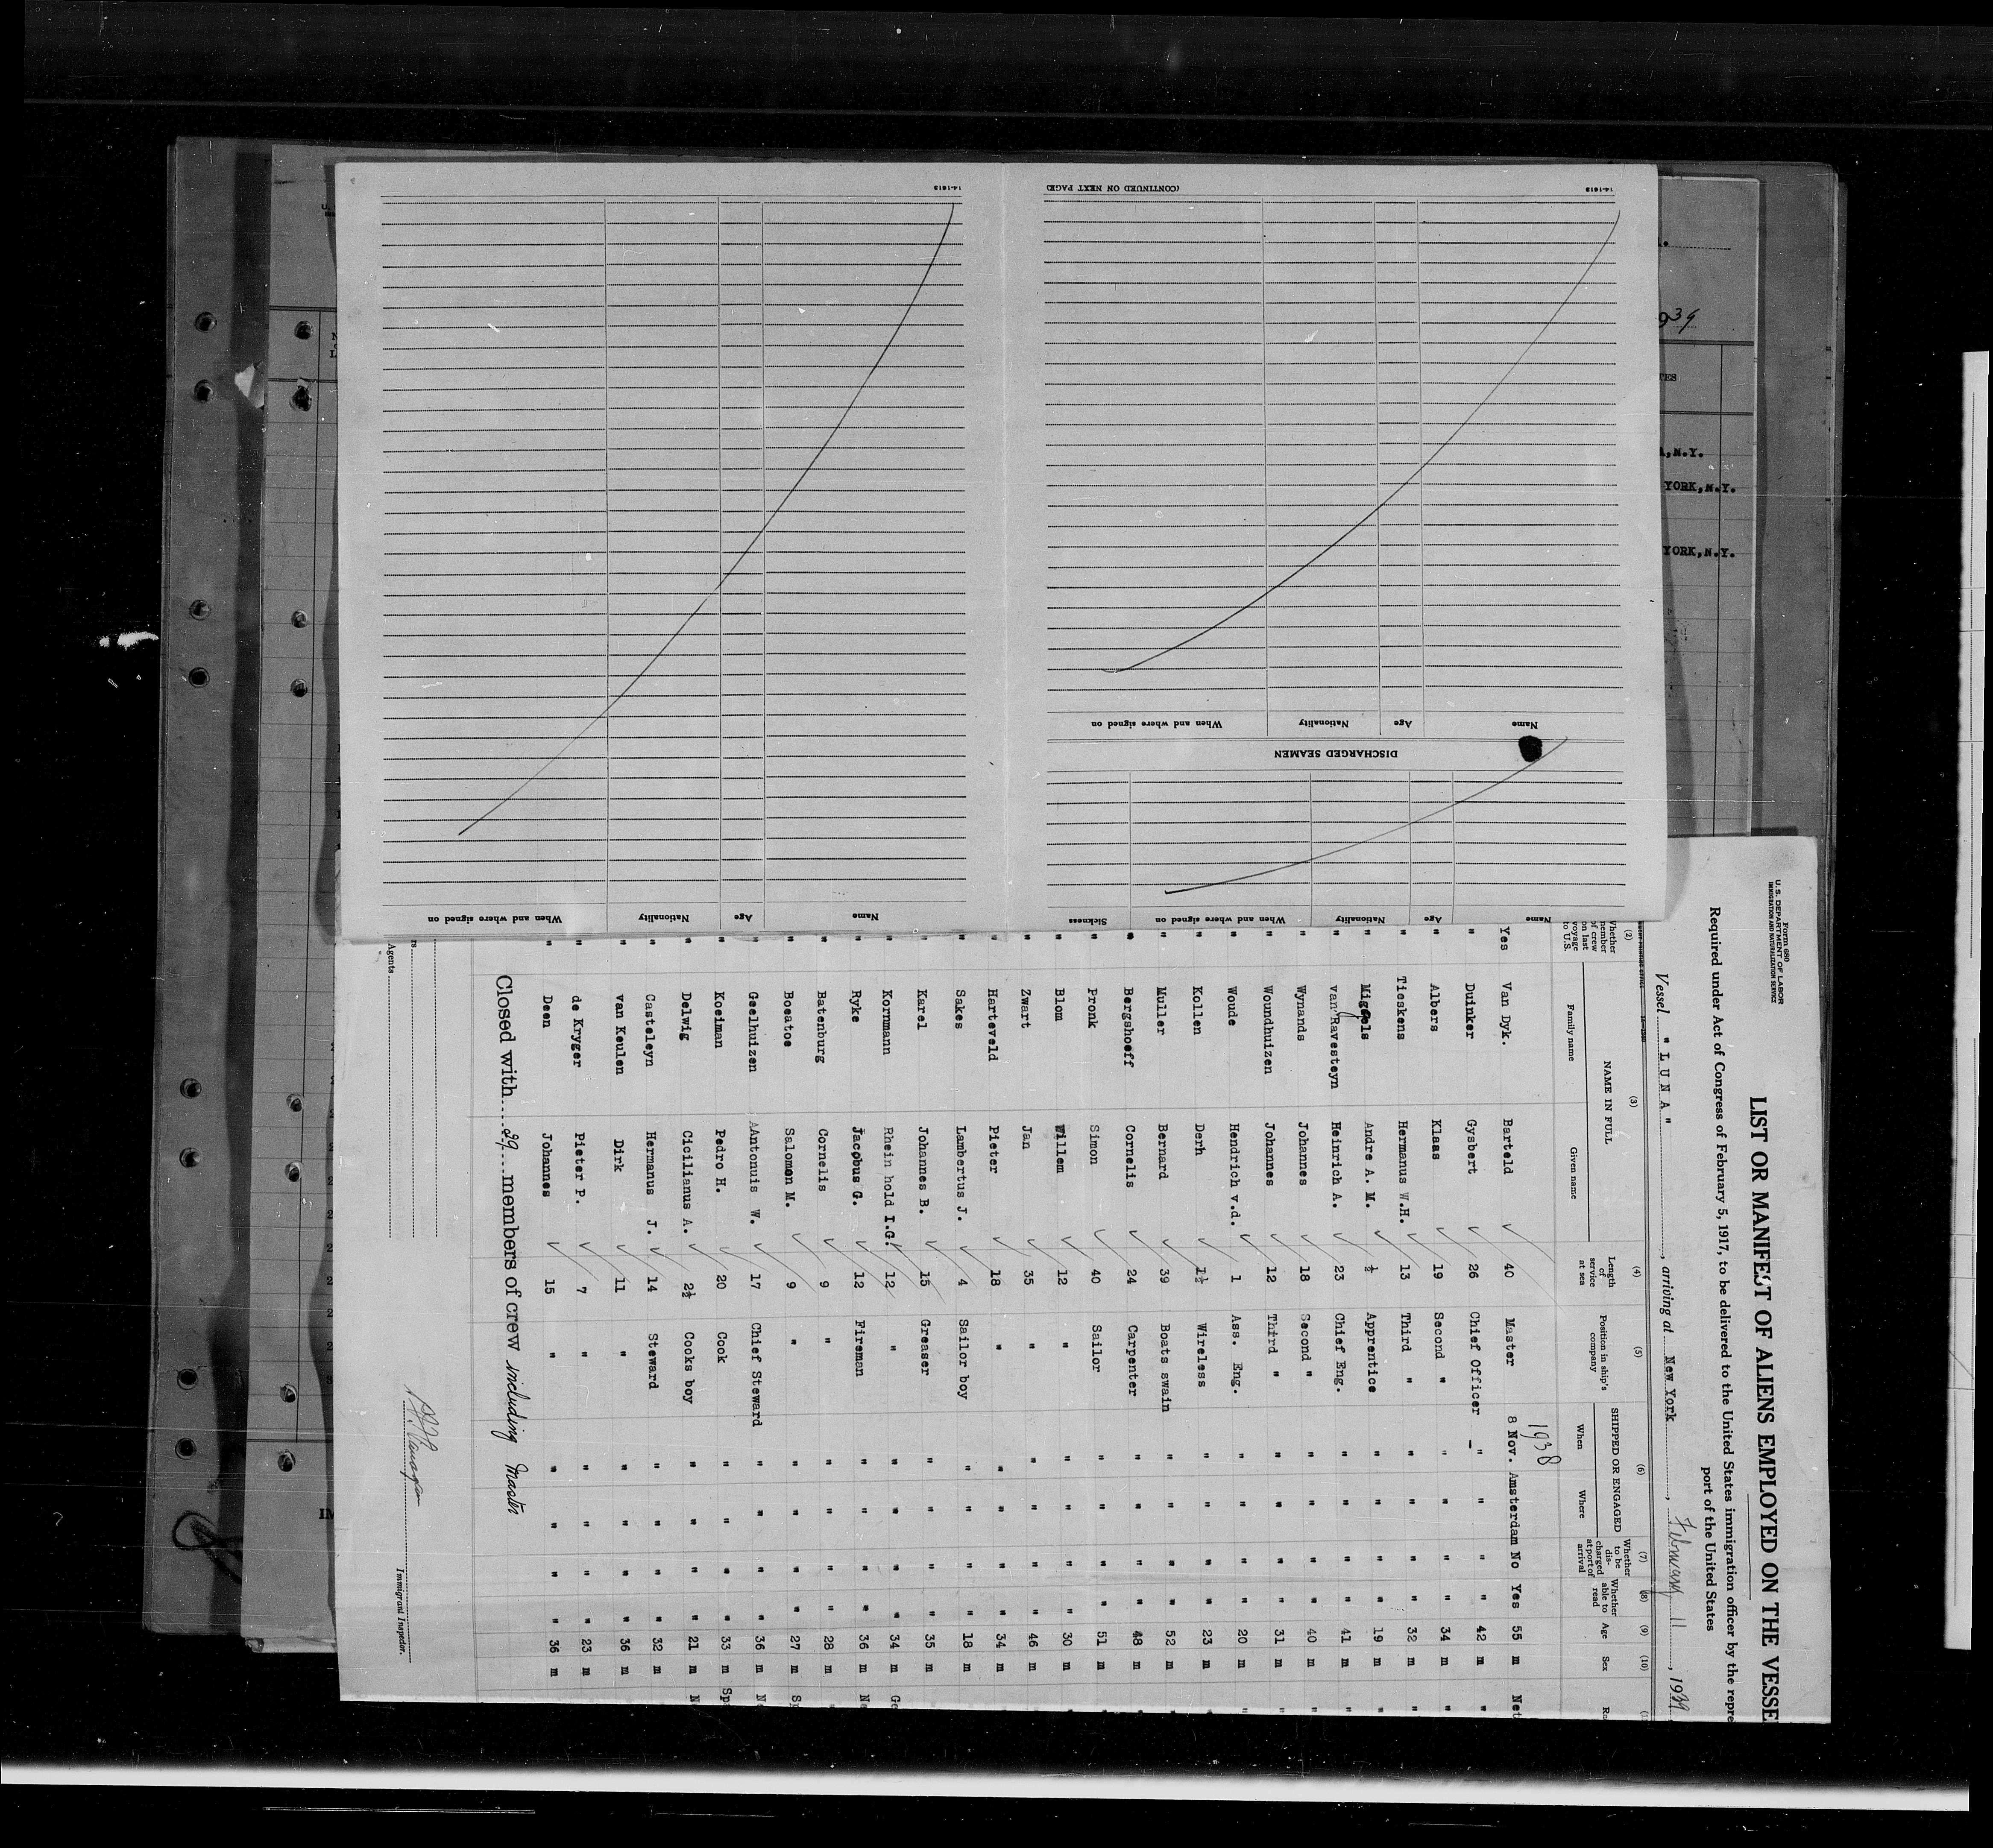 Form 680
U. S. DEPARTMENT OF LABOR
IMMIGRATION AND NATURALIZATION SERVICE
LIST OR MANIFEST OF ALIENS EMPLOYED ON THE VESSE
Required under Act of Congress of February 5, 1917, to be delivered to the United States immigration officer by the repre
port of the United States
Vessel " L U N A " , arriving at New York , February 11 , 1939
(2) (3) (4) (5) (6) (7) (8) (9) (10)
Whether member of crew on last voyage to U.S. NAME IN FULL Family name Given name Length of service at sea Position in ship's company SHIPPED OR ENGAGED When Where Whether to be discharged at port of arrival Whether able to read Age Sex
1938
Yes Van Dyk. Barteld 40 Master 8 Nov. Amsterdam No Yes 55 m Net
" Duinker Gysbert 26 Chief Officer — " " " " 42 m "
" Albers Klaas 19 Second " " " " " 34 m "
" Tieskens Hermanus W.H. 13 Third " " " " " 32 m "
" Miggels Andre A. M. ½ Apprentice " " " " 19 m "
" van Ravesteyn Heinrich A. 23 Chief Eng. " " " " 41 m "
" Wynands Johannes 18 Second " " " " " 40 m "
" Woundhuizen Johannes 12 Third " " " " " 31 m "
" Woude Hendrich v.d. 1 Ass. Eng. " " " " 20 m "
" Kollen Derh 1½ Wireless " " " " 23 m "
" Muller Bernard 39 Boats swain " " " " 52 m "
" Bergshoeff Cornelis 24 Carpenter " " " " 48 m "
" Pronk Simon 40 Sailor " " " " 51 m "
" Blom Willem 12 " " " " " 30 m "
" Zwart Jan 35 " " " " " 46 m "
" Harteveld Pieter 18 " " " " " 34 m "
" Sakes Lambertus J. 4 Sailor boy " " " " 18 m "
" Karel Johannes B. 15 Greaser " " " " 35 m "
" Kornmann Rhein hold I.G. 12 " " " " " 34 m Ge
" Ryke Jacobus G. 12 Fireman " " " " 36 m N
" Batenburg Cornelis 9 " " " " " 28 m "
" Boeatoe Salomon M. 9 " " " " " 27 m Sp
" Geelhuizen Antonuis W. 17 Chief Steward " " " " 36 m N
" Koeiman Pedro H. 20 Cook " " " " 33 m Spa
" Delwig Cicilianus A. 2½ Cooks boy " " " " 21 m Ne
" Casteleyn Hermanus J. 14 Steward " " " " 32 m
" van Keulen Dirk 11 " " " " " 36 m
" de Kryger Pieter P. 7 " " " " " 23 m
" Deen Johannes 15 " " " " " 36 m
Closed with 29 members of crew including Master
Agents
Immigrant Inspector.
Name Age Nationality When and where signed on Sickness
DISCHARGED SEAMEN
Name Age Nationality When and where signed on
14-1613 (CONTINUED ON NEXT PAGE)
Name Age Nationality When and where signed on
14-1613
939
TES
,N.Y.
YORK,N.Y.
YORK,N.Y.